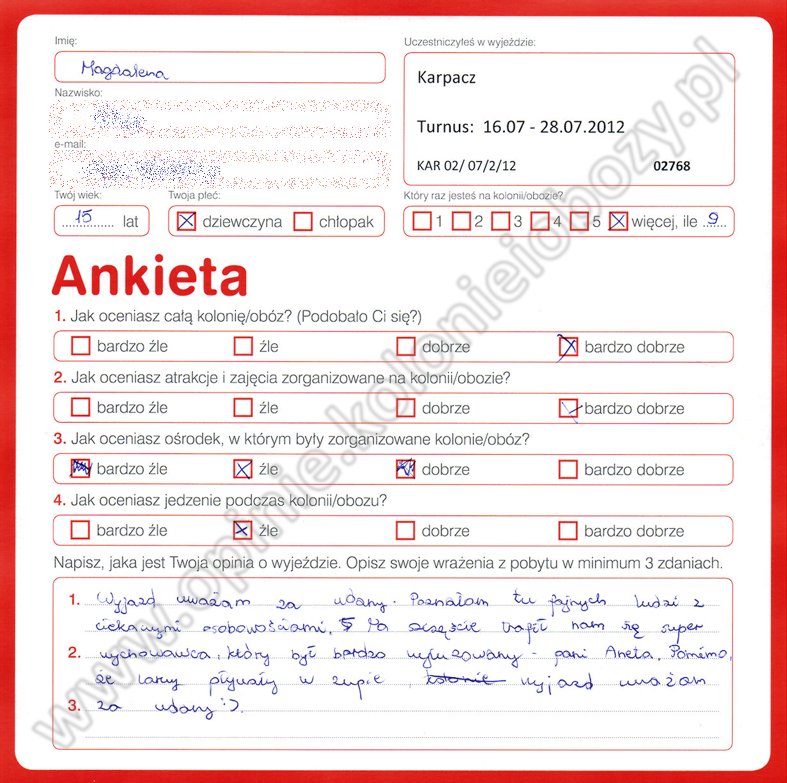 Imię:
Magdalena
Uczestniczyłeś w wyjeździe:
Karpacz
Turnus: 16.07 - 28.07.2012
KAR 02/ 07/2/12 02768
Nazwisko:
e-mail:
Twój wiek:
15 lat
Twoja płeć:
dziewczyna chłopak
Który raz jesteś na kolonii/obozie?
1 2 3 4 5 więcej, ile 9
Ankieta
1. Jak oceniasz całą kolonię/obóz? (Podobało Ci się?)
bardzo źle źle dobrze bardzo dobrze
2. Jak oceniasz atrakcje i zajęcia zorganizowane na kolonii/obozie?
bardzo źle źle dobrze bardzo dobrze
3. Jak oceniasz ośrodek, w którym były zorganizowane kolonie/obóz?
bardzo źle źle dobrze bardzo dobrze
4. Jak oceniasz jedzenie podczas kolonii/obozu?
bardzo źle źle dobrze bardzo dobrze
Napisz, jaka jest Twoja opinia o wyjeździe. Opisz swoje wrażenia z pobytu w minimum 3 zdaniach.
1. Wyjazd uważam za udany. Poznałam tu fajnych ludzi z
ciekawymi osobowościami. Na szczęście trafił nam się super
2. wychowawca, który był bardzo wyluzowany - pani Aneta. Pomimo,
że larwy pływały w zupie, wyjazd uważam
3. za udany :).
www.opinie.kolonieiobozy.pl